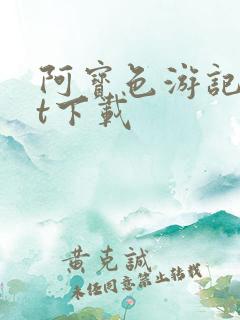 阿寳色游記
t下載
黄克誠
未任同意禁止转载